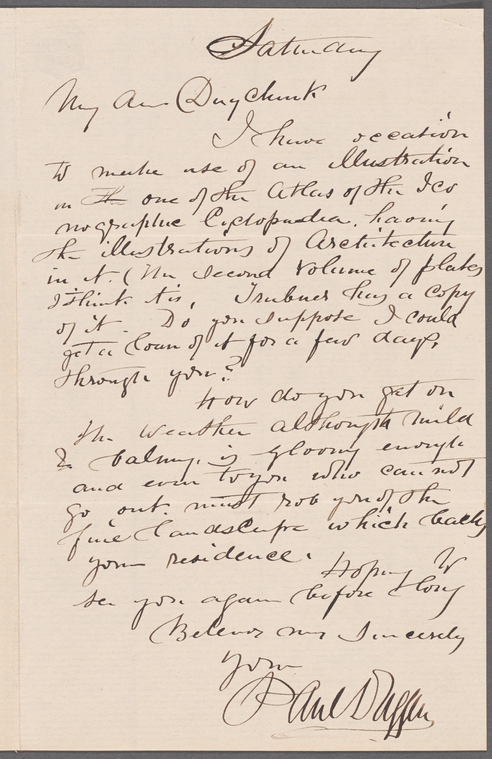 Saturday
My dear Duyckinck
I have occation
to make use of an illustration
in the one of the Atlas of the Ico
nographic Cyclopaedia. having
the illustrations of Architecture
in it. (The second volume of plates
I think tis, Trubner has a copy
of it. Do you suppose I could
get a loan of it for a few days,
through you?
How do you get on
the weather although mild
& balmy, is gloomy enough
and even to you who can not
go out. must rob you of the
fine landscape which backs
your residence.
Hoping to
see you again before long
Believe me Sincerely
Yours
Paul Duggan